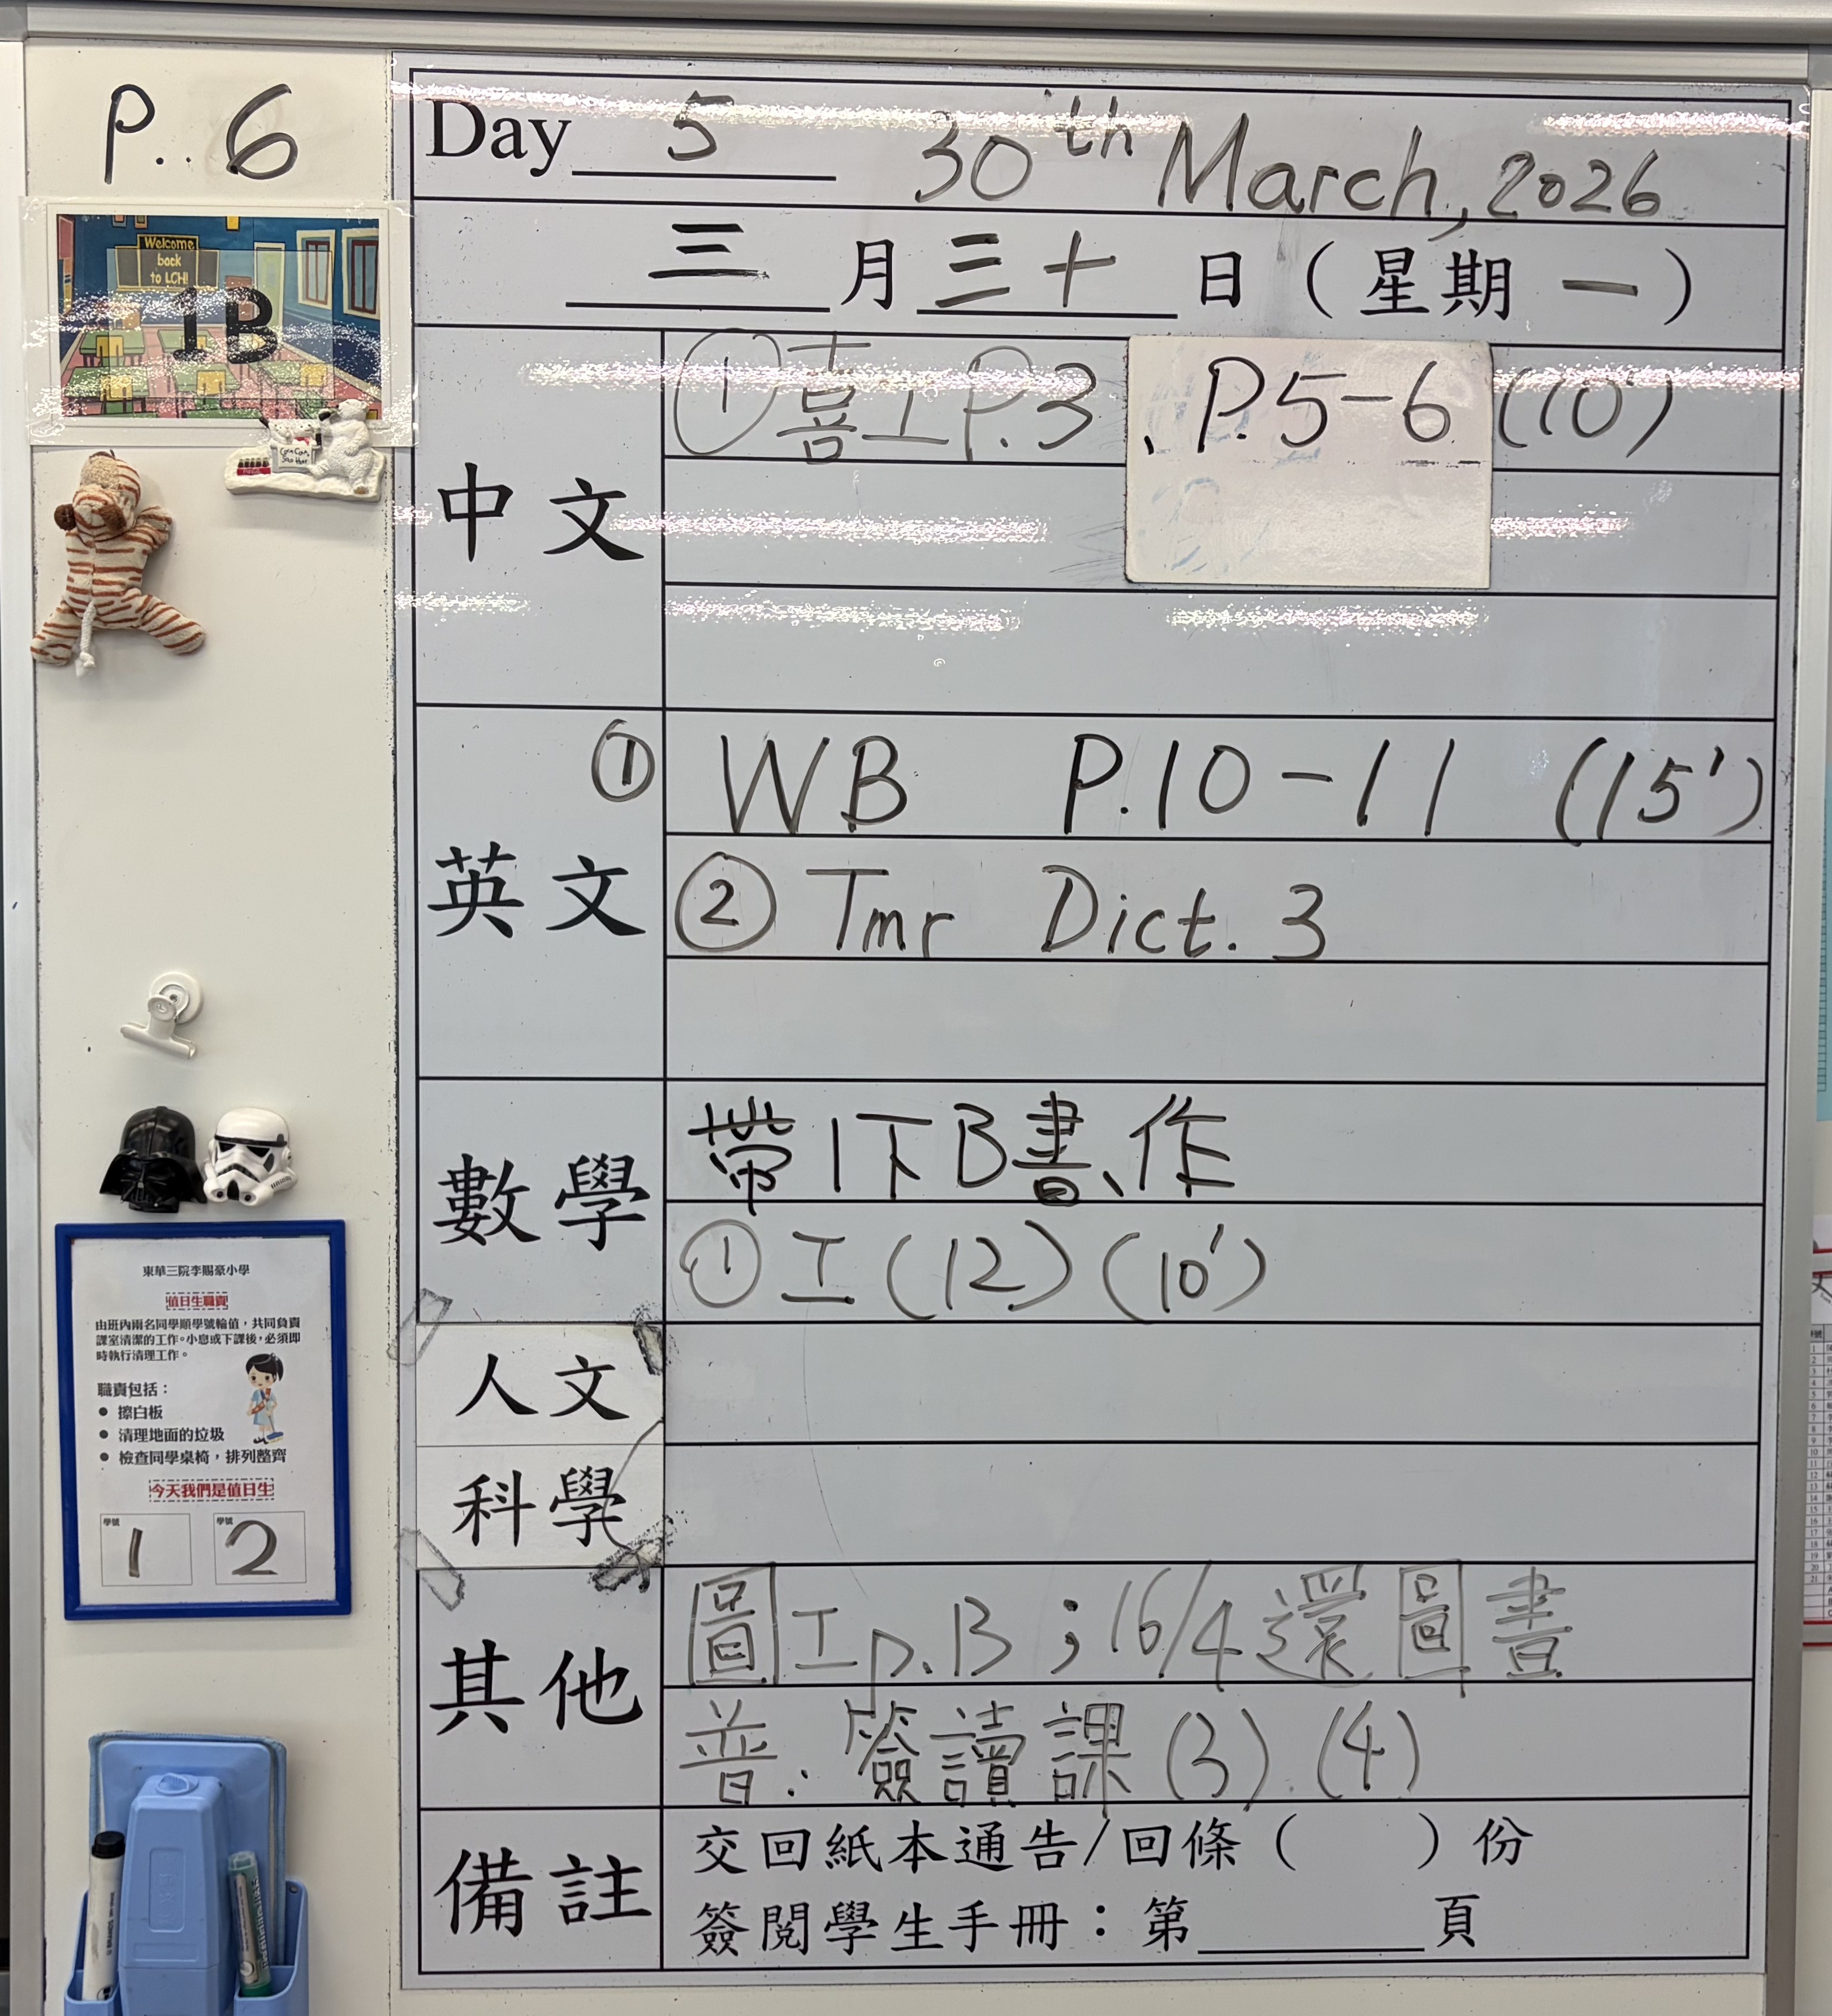 P..6
Welcome
back
to LCH!
1B
Day 5 30th March, 2026
三月三十日（星期一）
中文
①喜工P.3、P.5-6 (10')
英文
① WB P.10-11 (15')
② Tmr Dict. 3
數學
帶1下B書、作
① 工(12) (10')
人文
科學
其他
圖工p.13；16/4還圖書
普：簽讀課(3).(4)
備註
交回紙本通告/回條（ ）份
簽閱學生手冊：第______頁
東華三院李賜豪小學
值日生職責
由班內兩名同學順學號輪值，共同負責
課室清潔的工作。小息或下課後，必須即
時執行清理工作。
職責包括：
● 擦白板
● 清理地面的垃圾
● 檢查同學桌椅，排列整齊
今天我們是值日生
學號 1 學號 2